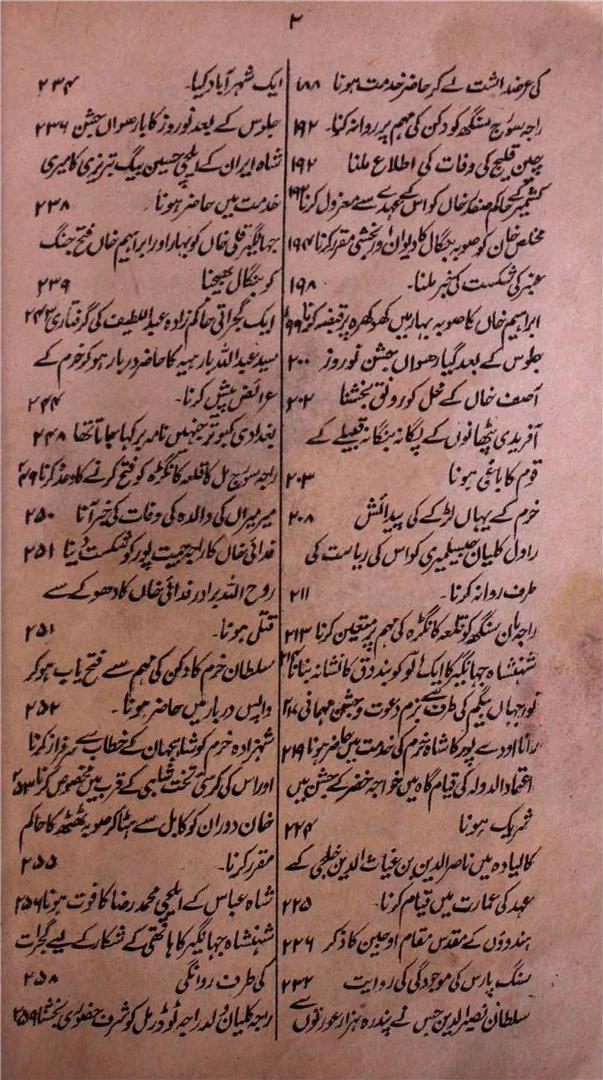 ۲
کی عرضداشت لے کر حاضر خدمت ہونا ۱۸۸
راجہ سورج سنگھ کو دکن کی مہم پر روانہ کرنا۔ ۱۹۲
چین قلیچ کی وفات کی اطلاع ملنا ۱۹۲
کشمیر کے حاکم صفدر خاں کو اس کے عہدے سے معزول کرنا ۱۹۲
مخلص خان کو صوبہ بنگال کا دیوان اور بخشی مقرر کرنا ۱۹۴
عنبر کی شکست کی خبر ملنا۔ ۱۹۸
ابراہیم خاں کا صوبہ بہار میں کھوکھرہ پر قبضہ کرنا ۱۹۹
جلوس کے بعد گیارھواں جشن نوروز ۲۰۰
آصف خاں کے محل کو رونق بخشنا ۲۰۲
آفریدی پٹھانوں کے یگانہ بنگانہ قبیلے کے
قوم کا باغی ہونا ۲۰۳
خرم کے یہاں لڑکے کی پیدائش ۲۰۸
راول کلیان جیسلمیری کو اس کی ریاست کی
طرف روانہ کرنا۔ ۲۱۱
راجہ مان سنگھ کو قلعہ کانگڑہ کی مہم پر متعین کرنا ۲۱۳
شہنشاہ جہانگیر کا ایک الو کو بندوق کا نشانہ بنانا
نور جہاں بیگم کی طرف سے بزم دعوت و جشن مہمانی ۲۱۷
رانا اودے پور کا شاہ خرم کی خدمت میں حاضر ہونا ۲۱۹
اعتماد الدولہ کی قیام گاہ میں خواجہ خضر کے جشن میں
شریک ہونا ۲۲۴
کالیادہ میں ناصر الدین بن غیاث الدین خلجی کے
عہد کی عمارت میں قیام کرنا۔ ۲۲۵
ہندوؤں کے مقدس مقام اوجین کا ذکر ۲۲۶
سنگ پارس کی موجودگی کی روایت ۲۳۲
سلطان نصیر الدین جس نے پندرہ ہزار عورتوں سے
ایک شہر آباد کیا۔ ۲۳۴
جلوس کے بعد نوروز کا بارھواں جشن ۲۳۶
شاہ ایران کے ایلچی حسین بیگ تبریزی کا میری
خدمت میں حاضر ہونا۔ ۲۳۸
جہانگیر قلی خاں کو بہار اور ابراہیم خاں فتح جنگ
کو بنگال بھیجنا ۲۳۹
ایک گجراتی حاکم زادہ عبد اللطیف کی گرفتاری ۲۴۳
سید عبد اللہ بارہیہ کا حاضر دربار ہو کر خرم کے
عرائض پیش کرنا۔ ۲۴۴
بغدادی کبوتر جنہیں نامہ بر کہا جاتا تھا ۲۴۸
راجہ سورج مل کا قلعہ کانگڑہ کو فتح کرنے کا وعدہ کرنا ۲۴۹
میر میراں کی والدہ کی وفات کی خبر آنا ۲۵۰
فدائی خاں کا راجہ جیت پور کو شکست دینا ۲۵۱
روح اللہ برادر فدائی خاں کا دھوکے سے
قتل ہونا۔ ۲۵۱
سلطان خرم کا دکن کی مہم سے فتح یاب ہو کر
واپس دربار میں حاضر ہونا۔ ۲۵۲
شہزادہ خرم کو شاہجہان کے خطاب سے سرفراز کرنا
اور اس کی کرسی تخت شاہی کے قریب میں مخصوص کرنا ۲۵۳
خان دوران کو کابل سے ہٹا کر صوبہ ٹھٹھہ کا حاکم
مقرر کرنا۔ ۲۵۵
شاہ عباس کے ایلچی محمد رضا کا فوت ہونا ۲۵۶
شہنشاہ جہانگیر کا ہاتھی کے شکار کے لیے گجرات
کی طرف روانگی ۲۵۸
راجہ کلیان ولد راجہ ٹوڈرمل کو شرف حضوری بخشنا ۲۵۹